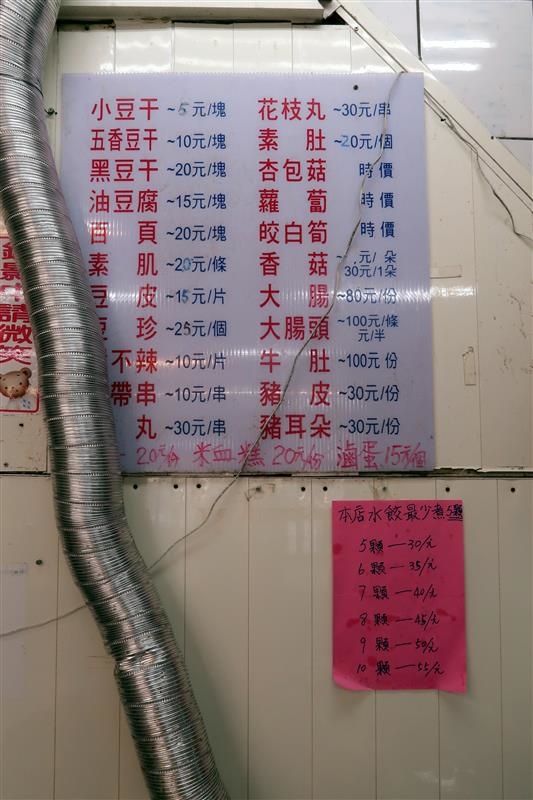 小豆干 ~5元/塊
五香豆干 ~10元/塊
黑豆干 ~20元/塊
油豆腐 ~15元/塊
百頁 ~20元/塊
素肌 ~20元/條
豆皮 ~15元/片
豆珍 ~25元/個
不辣 ~10元/片
帶串 ~10元/串
丸 ~30元/串
花枝丸 ~30元/串
素肚 ~20元/個
杏包菇 時價
蘿蔔 時價
皎白筍 時價
香菇 元/朵
30元/1朵
大腸 ~80元/份
大腸頭 ~100元/條
元/半
牛肚 ~100元 份
豬皮 ~30元/份
豬耳朵 ~30元/份
20元份 米血糕 20元/份 滷蛋 15元/個
請微笑
本店水餃最少煮5顆
5顆—30/元
6顆—35/元
7顆—40/元
8顆—45/元
9顆—50/元
10顆—55/元